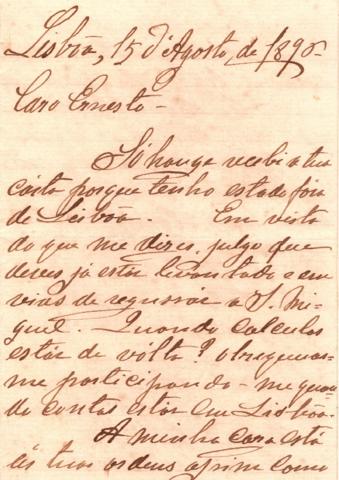 Lisbôa, 15 d'Agosto, de 1890-
Caro Ernesto-
Só recebi a tua
carta porque tenho estado fora
de Lisbôa. Em vista
do que me dizes, julgo que
deves já estar levantado e em
vias de regressar a S. Mi-
guel. Quando calculas
estar de vólta? Obsequeias-
me participando-me quan-
do contas estar em Lisbôa.
A minha casa está
ás tuas ordens assim como